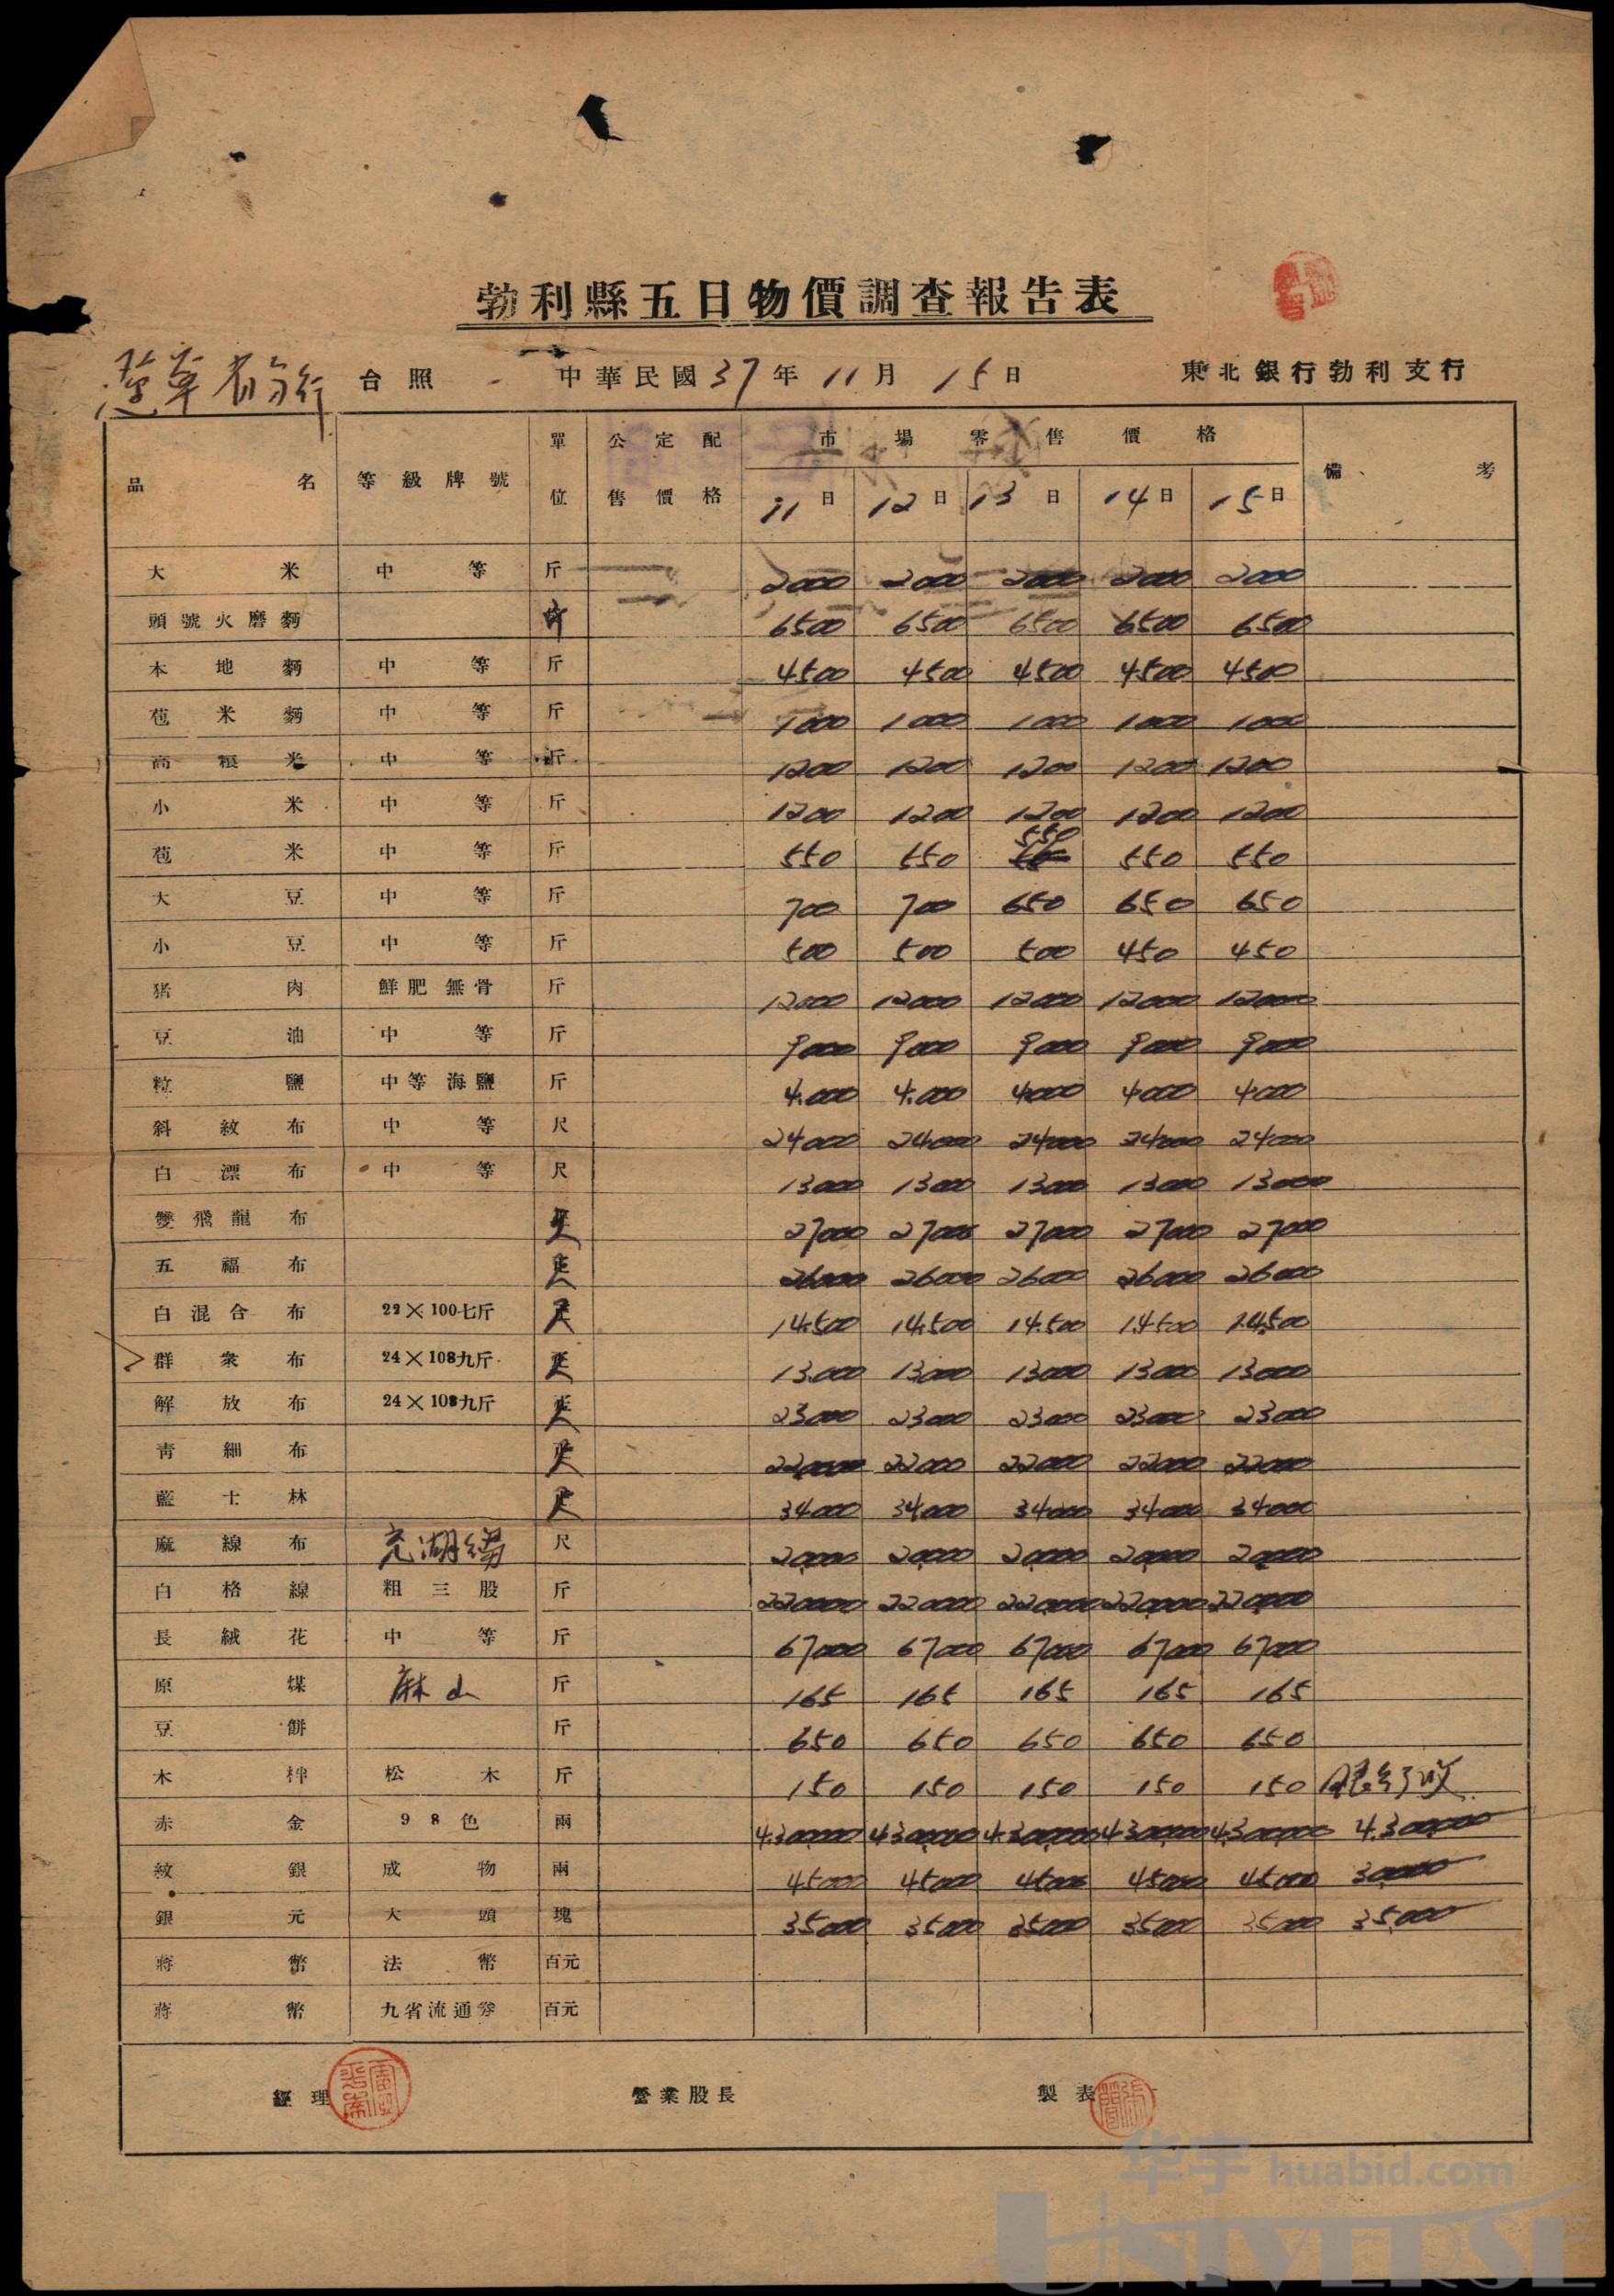 勃利縣五日物價調查報告表
省分行 台照 中華民國37年11月15日 東北銀行勃利支行
品名 等級牌號 單位 公定配售價格 市場零售價格 備考
11日 12日 13日 14日 15日
大米 中等 斤 2000 2000 2000 2000 2000
頭號火磨麵 斤 6500 6500 6500 6500 6500
本地麵 中等 斤 4500 4500 4500 4500 4500
苞米麵 中等 斤 1000 1000 1000 1000 1000
高粮米 中等 斤 1200 1200 1200 1200 1200
小米 中等 斤 1200 1200 1200 1200 1200
苞米 中等 斤 550 550 550 550 550
大豆 中等 斤 700 700 650 650 650
小豆 中等 斤 500 500 500 450 450
猪肉 鮮肥無骨 斤 12000 12000 12000 12000 12000
豆油 中等 斤 9000 9000 9000 9000 9000
粒鹽 中等海鹽 斤 4.000 4.000 4000 4000 4000
斜紋布 中等 尺 24000 24000 24000 24000 24000
白漂布 中等 尺 13000 13000 13000 13000 13000
雙飛龍布 尺 27000 27000 27000 27000 27000
五福布 尺 26000 26000 26000 26000 26000
白混合布 22×100七斤 尺 14.500 14.500 14.500 14.500 14.500
群衆布 24×108九斤 尺 13.000 13000 13000 13000 13000
解放布 24×108九斤 尺 23000 23000 23000 23000 23000
靑細布 尺 22000 22000 22000 22000 22000
藍士林 尺 34000 34000 34000 34000 34000
麻線布 尺 20,000 20,000 20,000 20,000 20,000
白格線 粗三股 斤 220000 220000 220000 220000 220000
長絨花 中等 斤 67000 67000 67000 67000 67000
原煤 麻山 斤 165 165 165 165 165
豆餅 斤 650 650 650 650 650
木柈 松木 斤 150 150 150 150 150 銀行收
赤金 98色 兩 4.300,000 4.300,000 4.300,000 4.300,000 4.300,000 4.300,000
紋銀 成物 兩 45000 45000 45000 45000 45000 30,000
銀元 大頭 塊 35000 35000 35000 35000 35000 35,000
蔣幣 法幣 百元
蔣幣 九省流通券 百元
經理 營業股長 製表
华宇 huabid.com
UNIVERSE